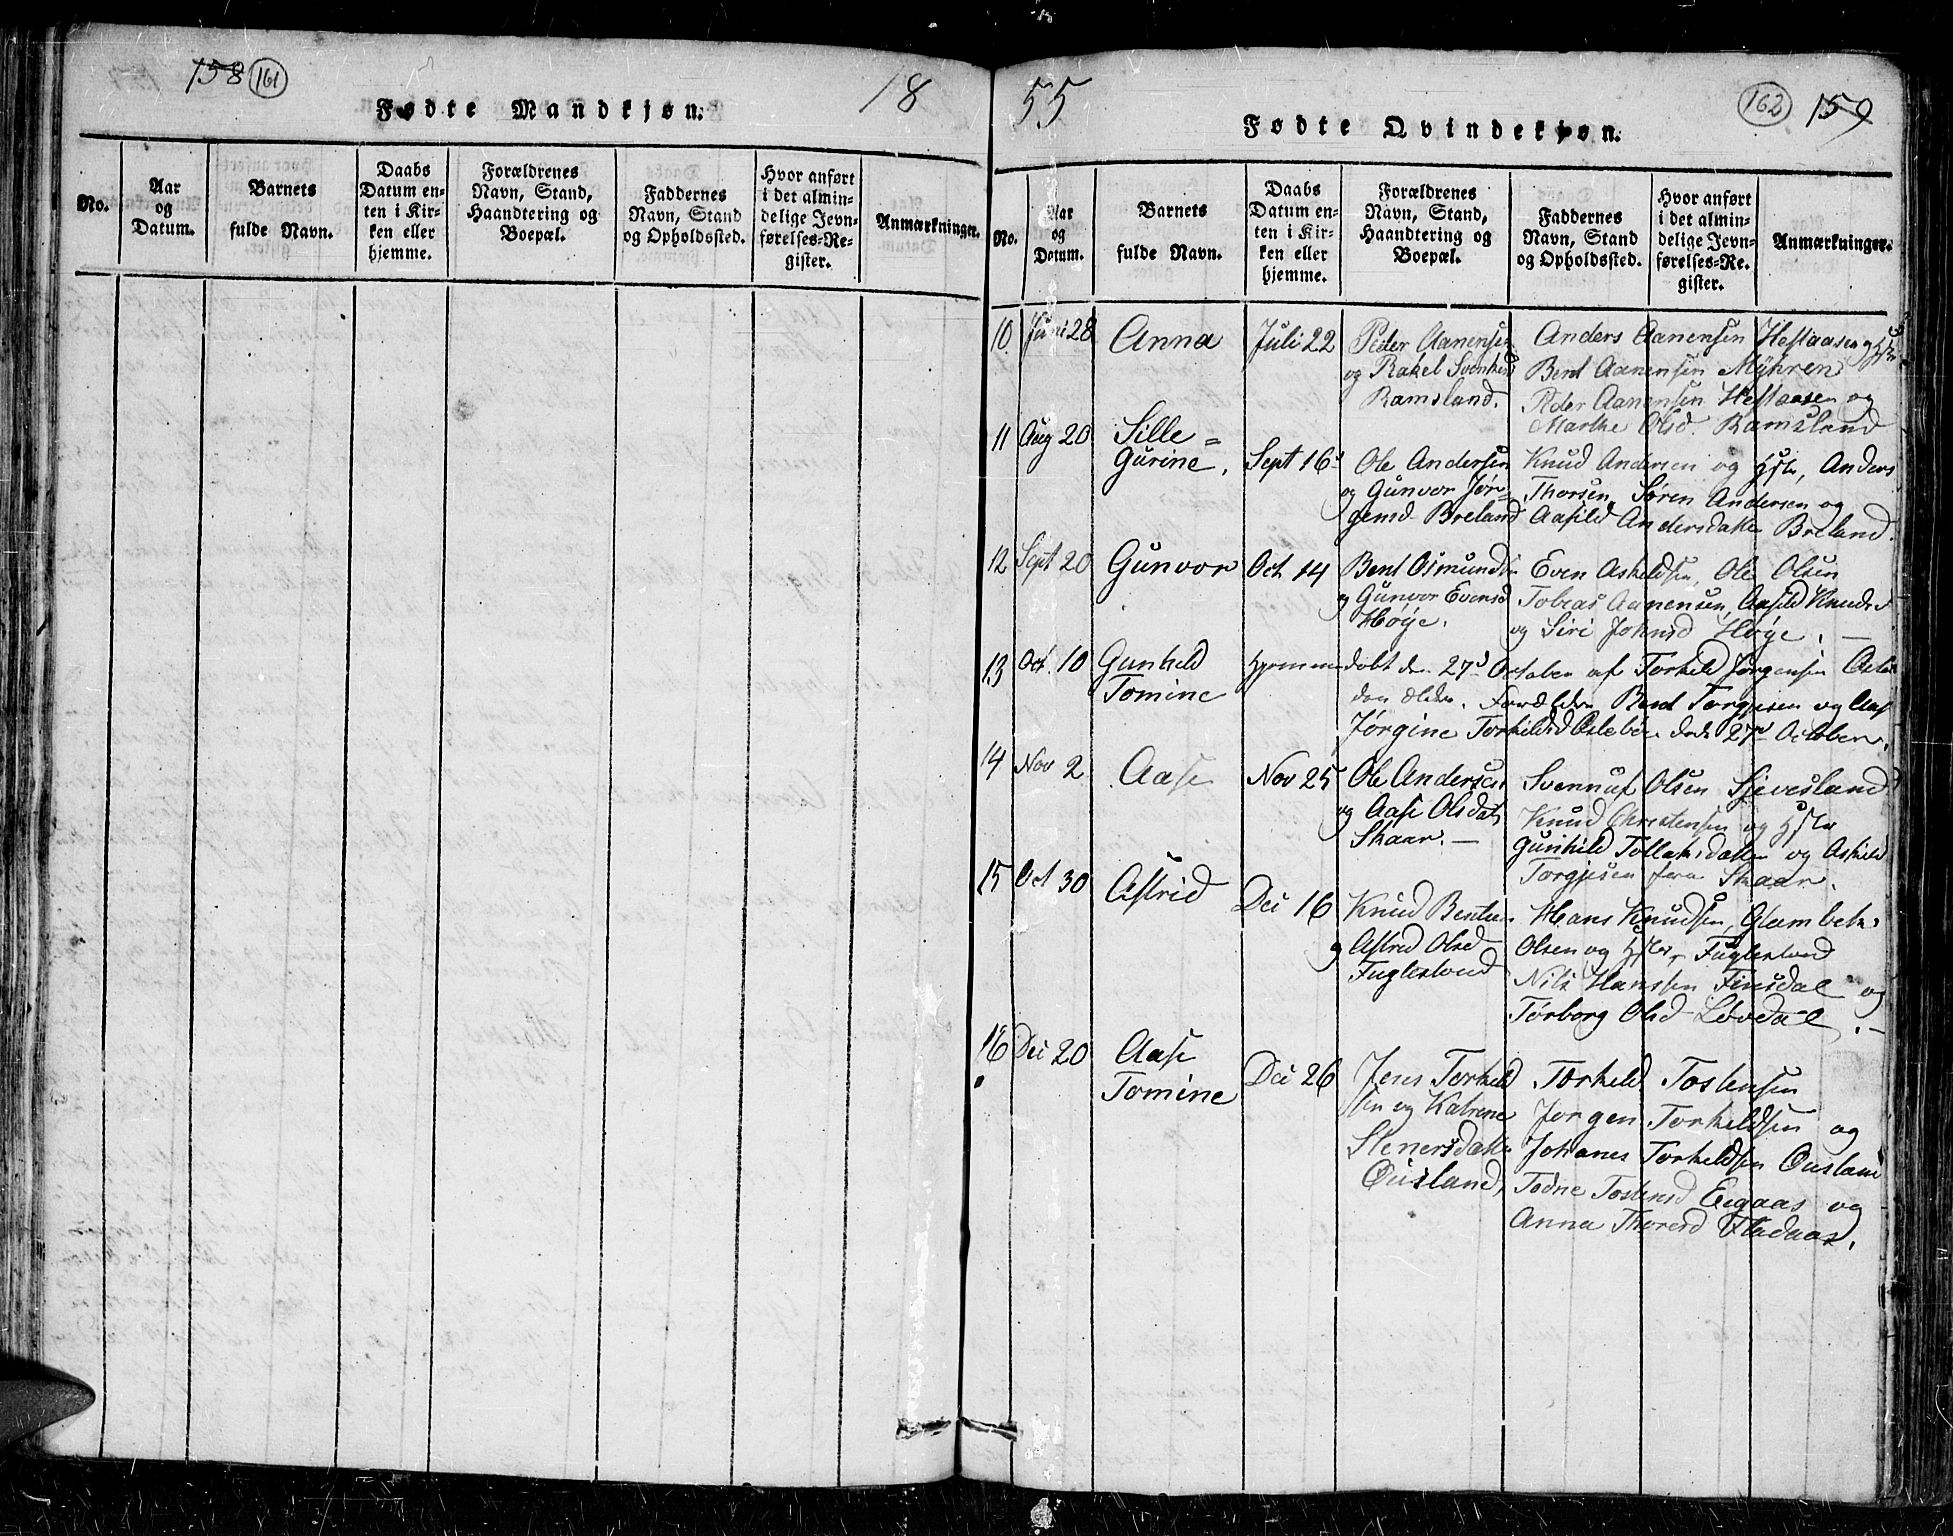 158 161
18
Fødte Mandkjøn.
No.
Aar
og
Datum.
Barnets
fulde Navn.
Daabs
Datum en-
ten i Kir-
ken eller
hjemme.
Forældrenes
Navn, Stand,
Haandtering og
Boepæl.
Faddernes
Navn, Stand
og Opholdssted.
Hvor anført
i det almin-
delige Jevn-
førelses-Re-
gister.
Anmærkninger.
55
162 159
Fødte Qvindekjøn.
No.
Aar
og
Datum.
Barnets
fulde Navn.
Daabs
Datum en-
ten i Kir-
ken eller
hjemme.
Forældrenes
Navn, Stand,
Haandtering og
Boepæl.
Faddernes
Navn, Stand
og Opholdssted.
Hvor anført
i det almin-
delige Jevn-
førelses-Re-
gister.
Anmærkninger.
10 Juni 28 Anna Juli 22
Peder Aanensen
og Rakel
Ramsland.
Anders Aanensen Heftaasen og
Bent Aanensen Myhren
Peder Aanensen Heftaasen og
Marthe Olsd. Ramsland
11 Aug 20 Sille=
Gurine. Sept 16
Ole Andersen
og Gunvor Jør=
gensd Breland
Knud Andersen og Hstr, Anders
Thorsen, Søren Andersen og
Aasild Andersdatter Breland.
12 Sept 20 Gunvor Oct 14
Bent Osmundsen
og Gunvor Evensd
Høye.
Even Askeldsen, Ole Olsen
Tobias Aanensen, Aasild Knudsd
og Siri Johnsd Høye. —
13 Oct. 10 Gunhild
Tomine
Hjemmedøbt den 27d October af Torkild Jørgensen
den ældre. Forældre Bent Torgjusen og
Jørgine Torkildsd Oslebø. død 27d October.
14 Nov 2 Aase Nov 25
Ole Andersen
og Aase Olsdat
Skaar. —
Svennuf Olsen Sjevesland
Knud Christensen og Hstr
Gunhild Tollaksdatter og Askild
Torgjusen fra Skaar.
15 Oct 30 Astrid Dec 16
Knud Bentsen
og Astrid Olsd
Fuglestved
Hans Knudsen, Glambek
Olsen og Hstr, Fuglestved
Nils Hanssen Finsdal og
Torborg Olsd Løvdal. —
16 Dec 20 Aase
Tomine Dec 26
Jens Torkild
sen og Katrine
Stenersdatter
Ousland,
Torkild Tostensen
Jørgen Torkildsen og
Johanes Torkildsen Ousland
Todne Tostensd Eegaas og
Anna Thoresd Fladaas.